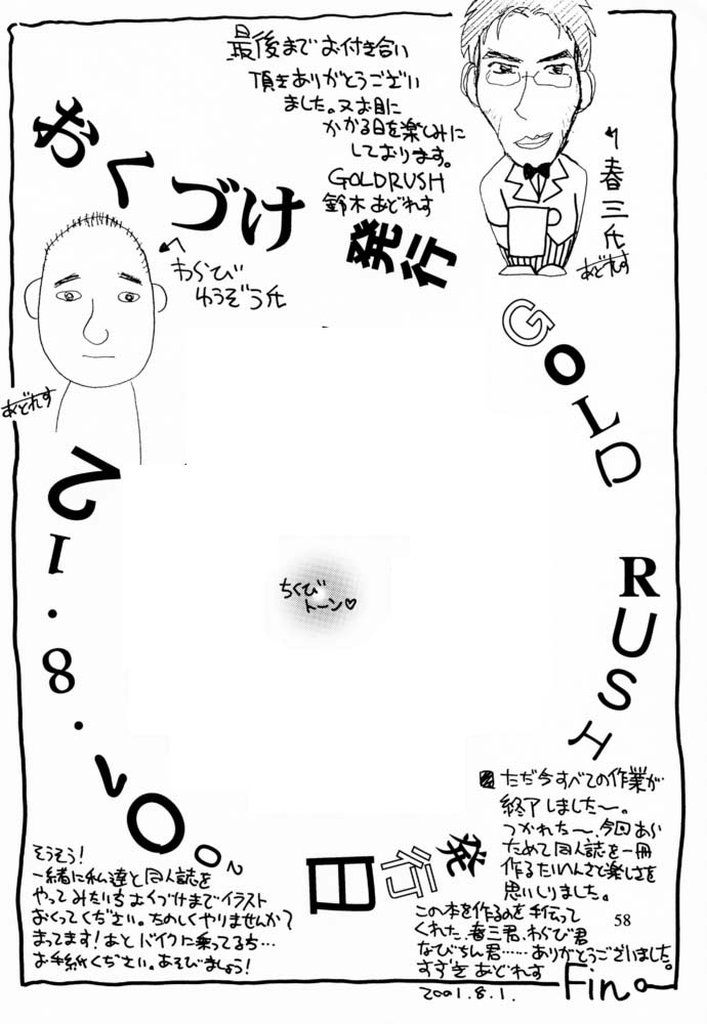 最後までお付き合い
頂きありがとうござい
ました。又お目に
かかる日を楽しみに
しております。
GOLDRUSH
鈴木あどれす
おくづけ
発行
春三氏
あどれす
わらび
ゆうぞう氏
あどれす
GOLD RUSH
ちくび
トーン♡
発行日
2001.8.12
ただ今すべての作業が
終了しました〜。
つかれた〜、今回あら
ためて同人誌を一冊
作るたいへんさと楽しさを
思いしりました。
この本を作るのを手伝って
くれた、春三君、わらび君
なびちん君……ありがとうございました。
すずき あどれす
2001.8.1.
Fin
58
そうそう!
一緒に私達と同人誌を
やってみたい方おくづけまでイラスト
おくってください。たのしくやりませんか?
まってます!あとバイクに乗ってる方…
お手紙ください。あそびましょう!